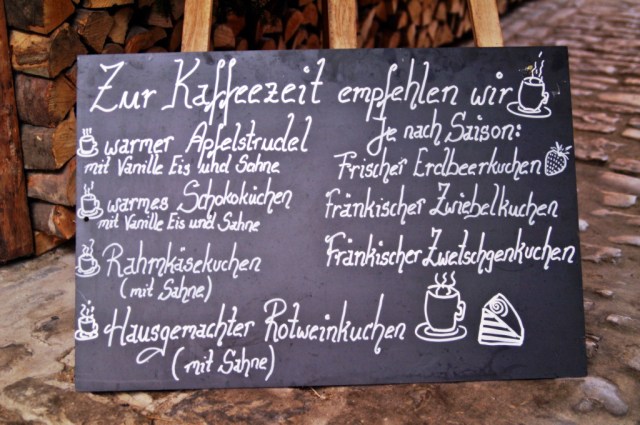 Zur Kaffeezeit empfehlen wir
warmer Apfelstrudel
mit Vanille Eis und Sahne
warmes Schokokuchen
mit Vanille Eis und Sahne
Rahmkäsekuchen
(mit Sahne)
Hausgemachter Rotweinkuchen
(mit Sahne)
Je nach Saison:
Frischer Erdbeerkuchen
fränkischer Zwiebelkuchen
Fränkischer Zwetschgenkuchen